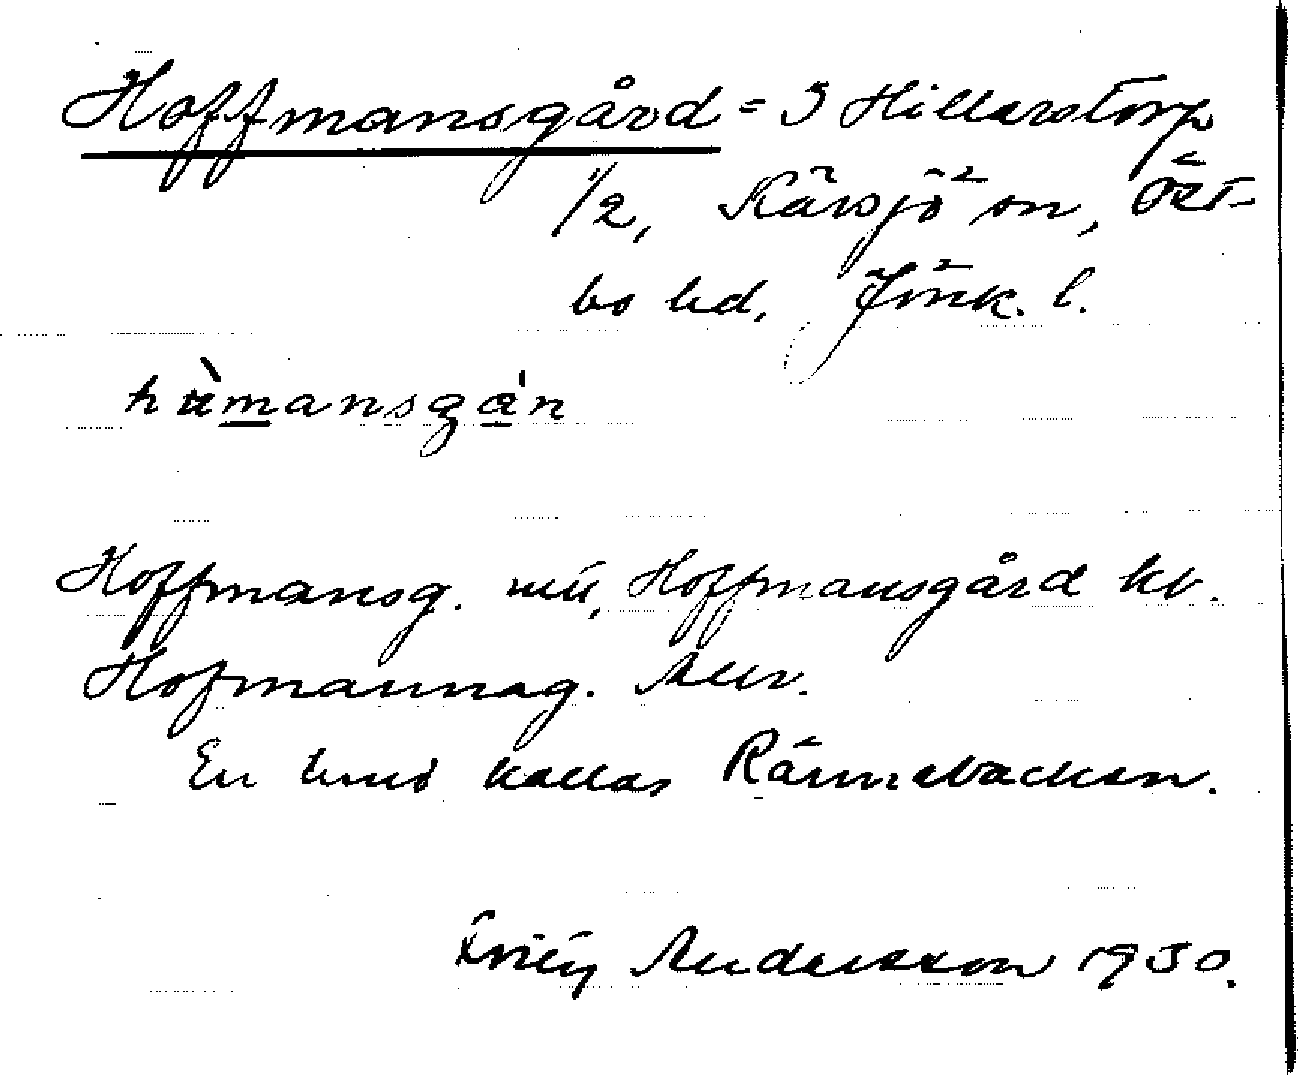 Hoffmansgård = S Hillerstorp
1/2, Kärsjö sn, Öst-
bo hd, Jönk. l.
hùmansgán
Hoffmansg. mü, Hoffmansgård kv.
Hofmannsg. Allm.
En hmd kallas Rännebacken.
Andersson 1930.